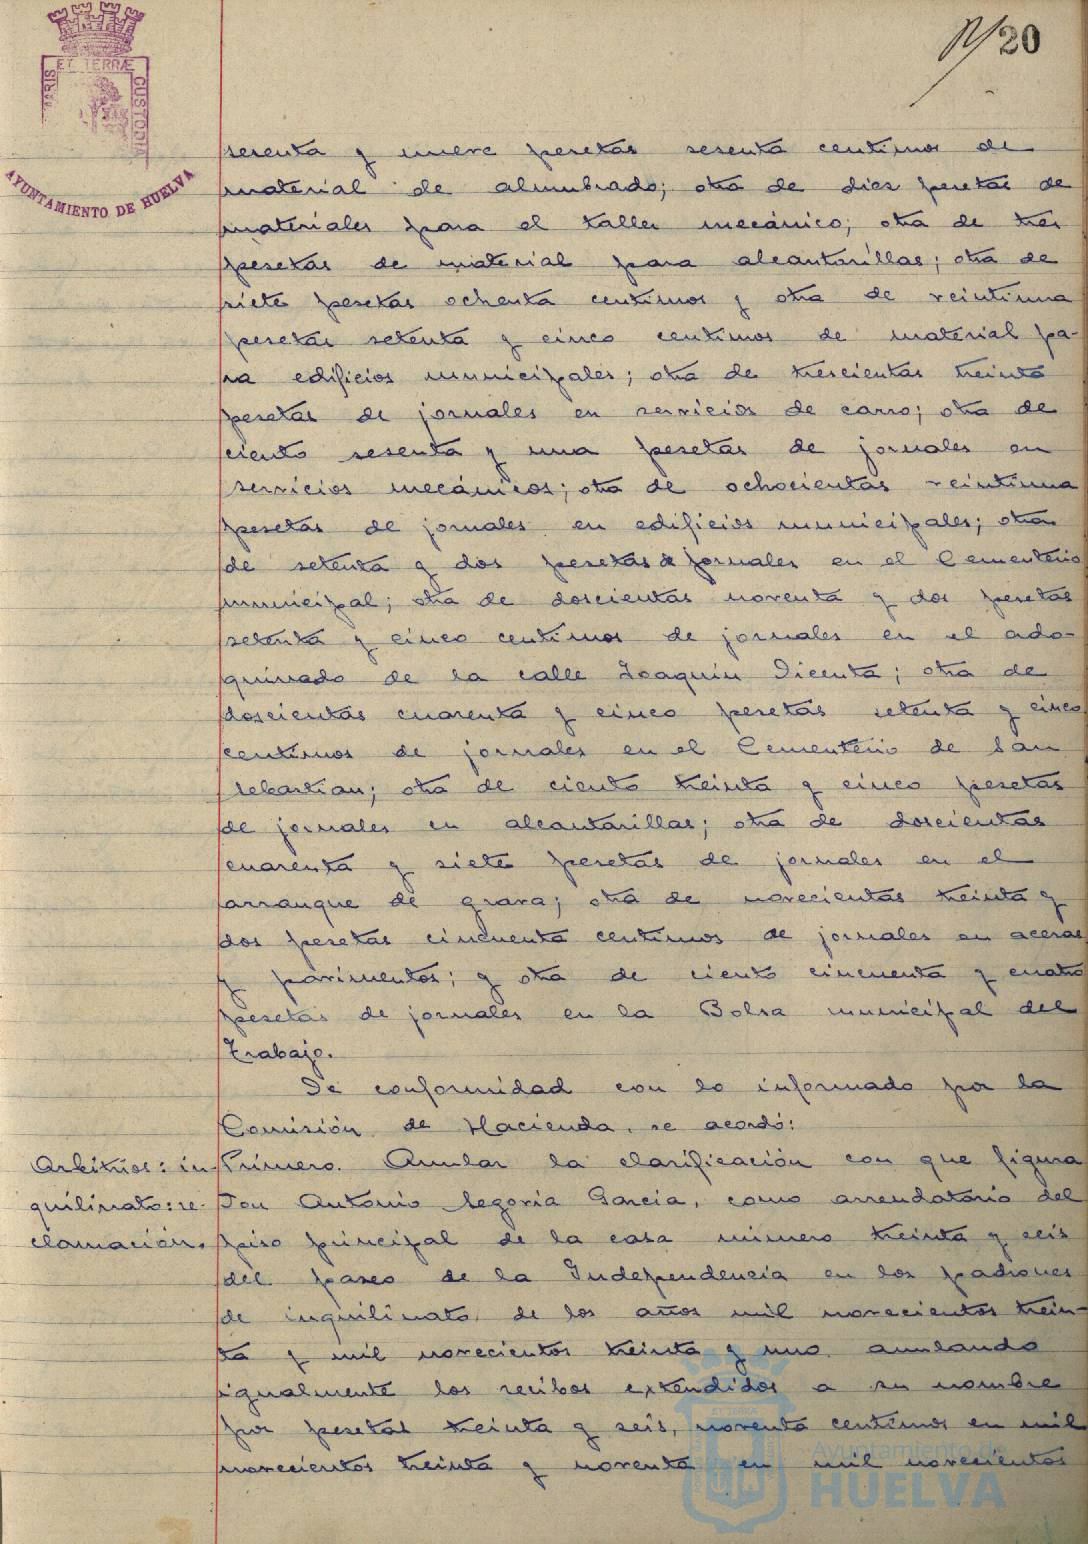 ET TERRÆ
MARIS
CUSTODIA
AYUNTAMIENTO DE HUELVA
20
sesenta y nueve pesetas sesenta centimos de
material de alumbrado; otra de diez pesetas de
materiales para el taller mecánico; otra de tres
pesetas de material para alcantarillas; otra de
siete pesetas ochenta centimos y otra de veintiuna
pesetas setenta y cinco centimos de material pa-
ra edificios municipales; otra de trescientas treinta
pesetas de jornales en servicios de carro; otra de
ciento sesenta y una pesetas de jornales en
servicios mecánicos; otra de ochocientas veintiuna
pesetas de jornales en edificios municipales; otra
de setenta y dos pesetas de jornales en el Cementerio
municipal; otra de doscientas noventa y dos pesetas
setenta y cinco centimos de jornales en el ado-
quinado de la calle Joaquin Dicenta; otra de
doscientas cuarenta y cinco pesetas setenta y cinco
centimos de jornales en el Cementerio de San
Sebastian; otra de ciento treinta y cinco pesetas
de jornales en alcantarillas; otra de doscientas
cuarenta y siete pesetas de jornales en el
arranque de grava; otra de novecientas treinta y
dos pesetas cincuenta centimos de jornales en aceras
y pavimentos; y otra de ciento cincuenta y cuatro
pesetas de jornales en la Bolsa municipal del
Trabajo.
De conformidad con lo informado por la
Comisión de Hacienda, se acordó:
Arbitrios: in-
quilinato: re-
clamación.
Primero. Anular la clasificación con que figura
Don Antonio Segovia Garcia, como arrendatario del
piso principal de la casa número treinta y seis
del paseo de la Independencia en los padrones
de inquilinato de los años mil novecientos trein-
ta y mil novecientos treinta y uno, anulando
igualmente los recibos extendidos a su nombre
por pesetas treinta y seis, noventa centimos en mil
novecientos treinta y noventa en mil novecientos
Ayuntamiento de
HUELVA